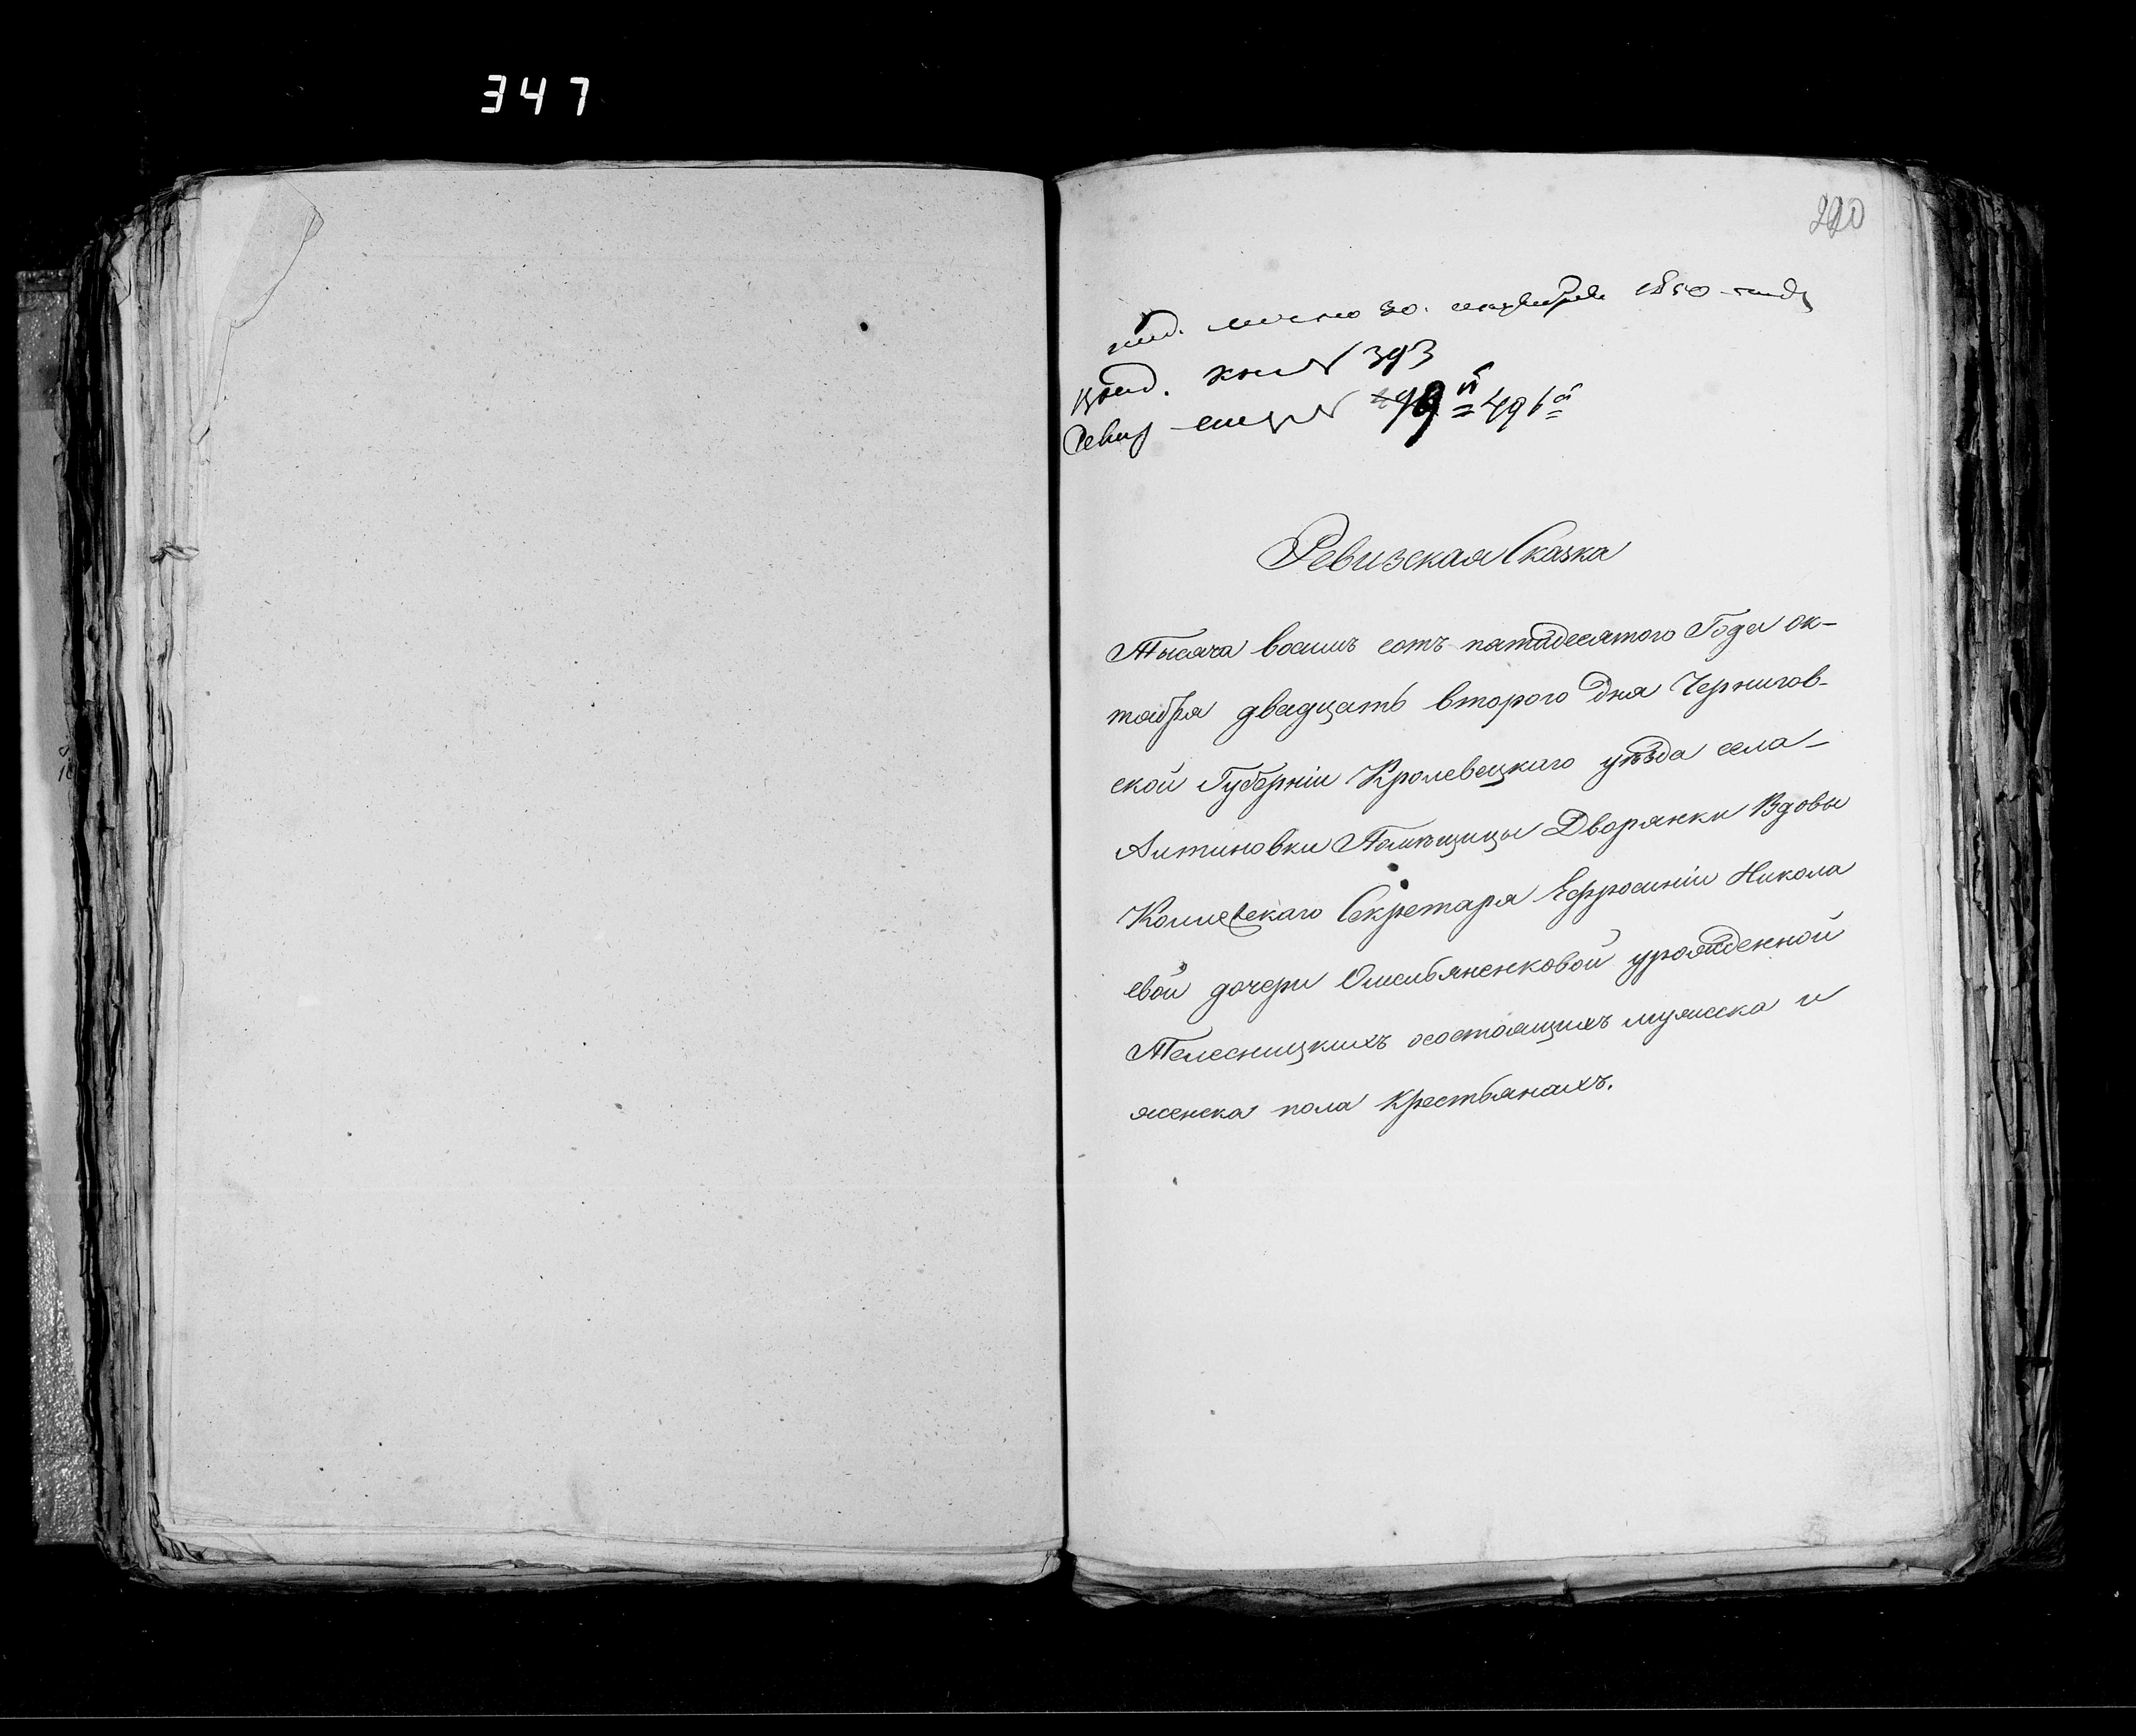 347
290
30. 1850 года
вход. книг № 393
Ревиз 491й
Ревизская Сказка
Тысяча восимъ сотъ пятидесятого Года ок-
тября двадцать второго дня Чернигов-
ской Губерніи Кролевецкаго уѣзда села-
Алтиновки Помѣщицы Дворянки Вдовы
Колежскаго Секретаря Ефросиніи Никола
евой дочери Омельяненковой урожденной
Телесницкихъ осостоящихъ мужска и
женска пола Крестьянахъ.